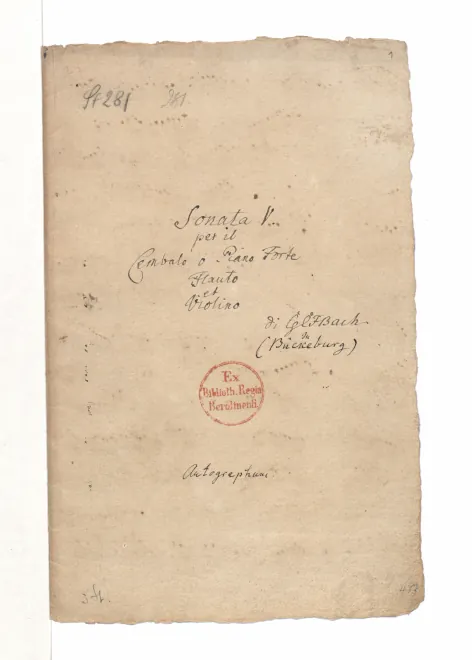 1
St 281 281.
Sonata V.
per il
Cembalo o Piano Forte
Flauto
et
Violino
di
(Bückeburg)
Ex
Biblioth. Regia
Berolinensi
Autographum